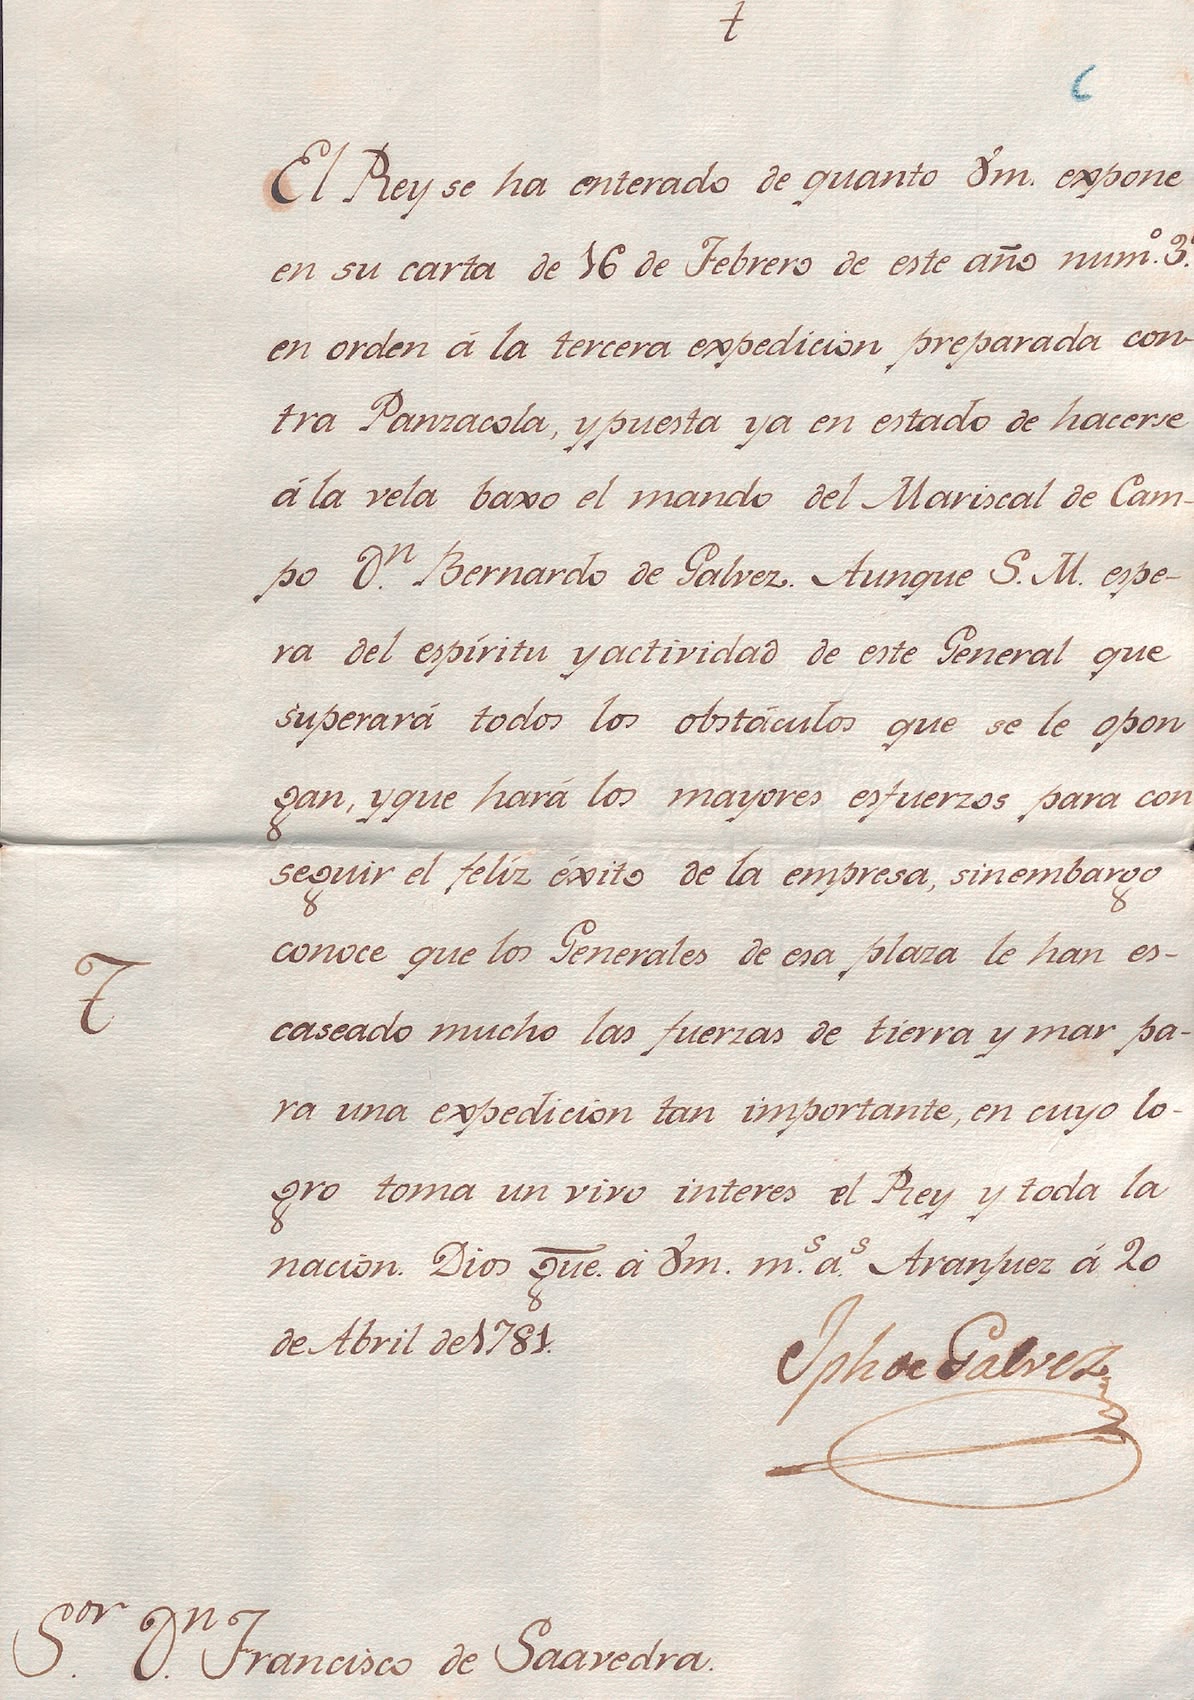 t
6
El Rey se ha enterado de quanto Vm. expone
en su carta de 16 de Febrero de este año num.º 3.º
en orden á la tercera expedicion preparada con-
tra Panzacola, y puesta ya en estado de hacerse
á la vela baxo el mando del Mariscal de Cam-
po D.n Bernardo de Galvez. Aunque S. M. espe-
ra del espíritu y actividad de este General que
superará todos los obstáculos que se le opon
gan, y que hará los mayores esfuerzos para con
seguir el felíz éxito de la empresa, sinembargo
conoce que los Generales de esa plaza le han es-
caseado mucho las fuerzas de tierra y mar pa-
ra una expedicion tan importante, en cuyo lo-
gro toma un vivo interes el Rey y toda la
nacion. Dios gue. á Vm. m.s a.s Aranjuez á 20
de Abril de 1781.
Jph de Galvez
S.or D.n Francisco de Saavedra.